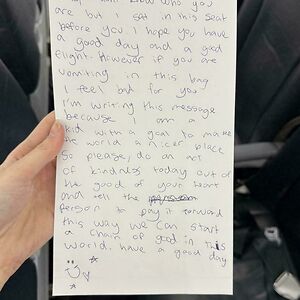 know who you
are but I sat in this seat
before you. I hope you have
a good day and a good
flight. However if you are
vomiting in this bag
I feel bad for you
I'm writing this message
because I am a
kid with a goal to make
the world a nicer place
So please, do an act
of kindness today out of
the good of your heart
and tell the
person to pay it forward
this way we can start
a chain of good in this
world. have a good day